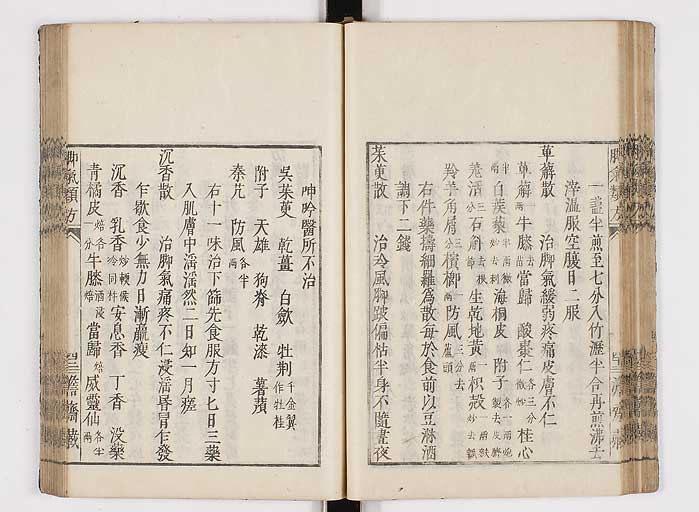 一盞半煎至七分入竹瀝半合再煎沸去
滓溫服空腹日二服
萆薢散　治脚氣緩弱疼痛皮膚不仁
萆薢 牛膝去苗 當歸 酸棗仁微炒各三分 桂心
海桐皮 附子
羌活 石斛去根 生乾地黃 枳殼
羚羊角屑 檳榔 防風三分去蘆頭
右件藥擣細羅爲散每於食前以豆淋酒
調下二錢
茱萸散　治冷風脚跛偏枯半身不隨晝夜
呻吟醫所不治
吳茱萸 乾薑 白歛 牡荆千金翼作牡桂
附子 天雄 狗脊 乾漆 薯蕷
秦艽 防風各半兩
右十一味治下篩先食服方寸七日三藥
入肌膚中淫淫然二日知一月瘥
沉香散　治脚氣痛疼不仁浸淫昬冒乍發
乍歇食少無力日漸羸瘦
沉香 乳香 安息香 丁香 沒藥
青橘皮 牛膝 當歸 威靈仙各半兩
脚氣類方